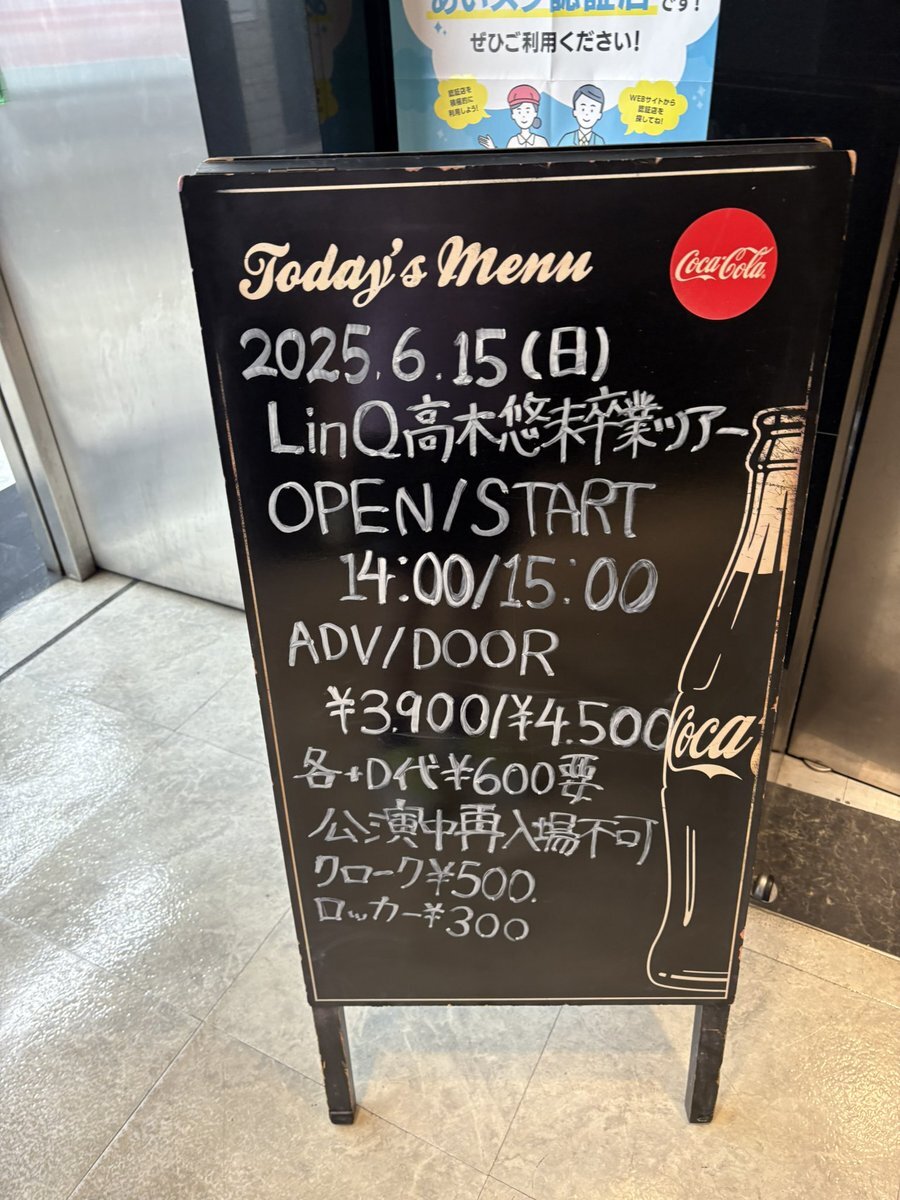 あいスタ認証店です!
ぜひご利用ください!
認証店を
積極的に
利用しよう!
WEBサイトから
認証店を
探してね!
Today's Menu
Coca-Cola
2025.6.15(日)
LinQ高木悠未卒業ツアー
OPEN/START
14:00/15:00
ADV/DOOR
¥3.900/¥4.500
各+D代¥600要
公演中再入場不可
クローク¥500.
ロッカー¥300
Coca